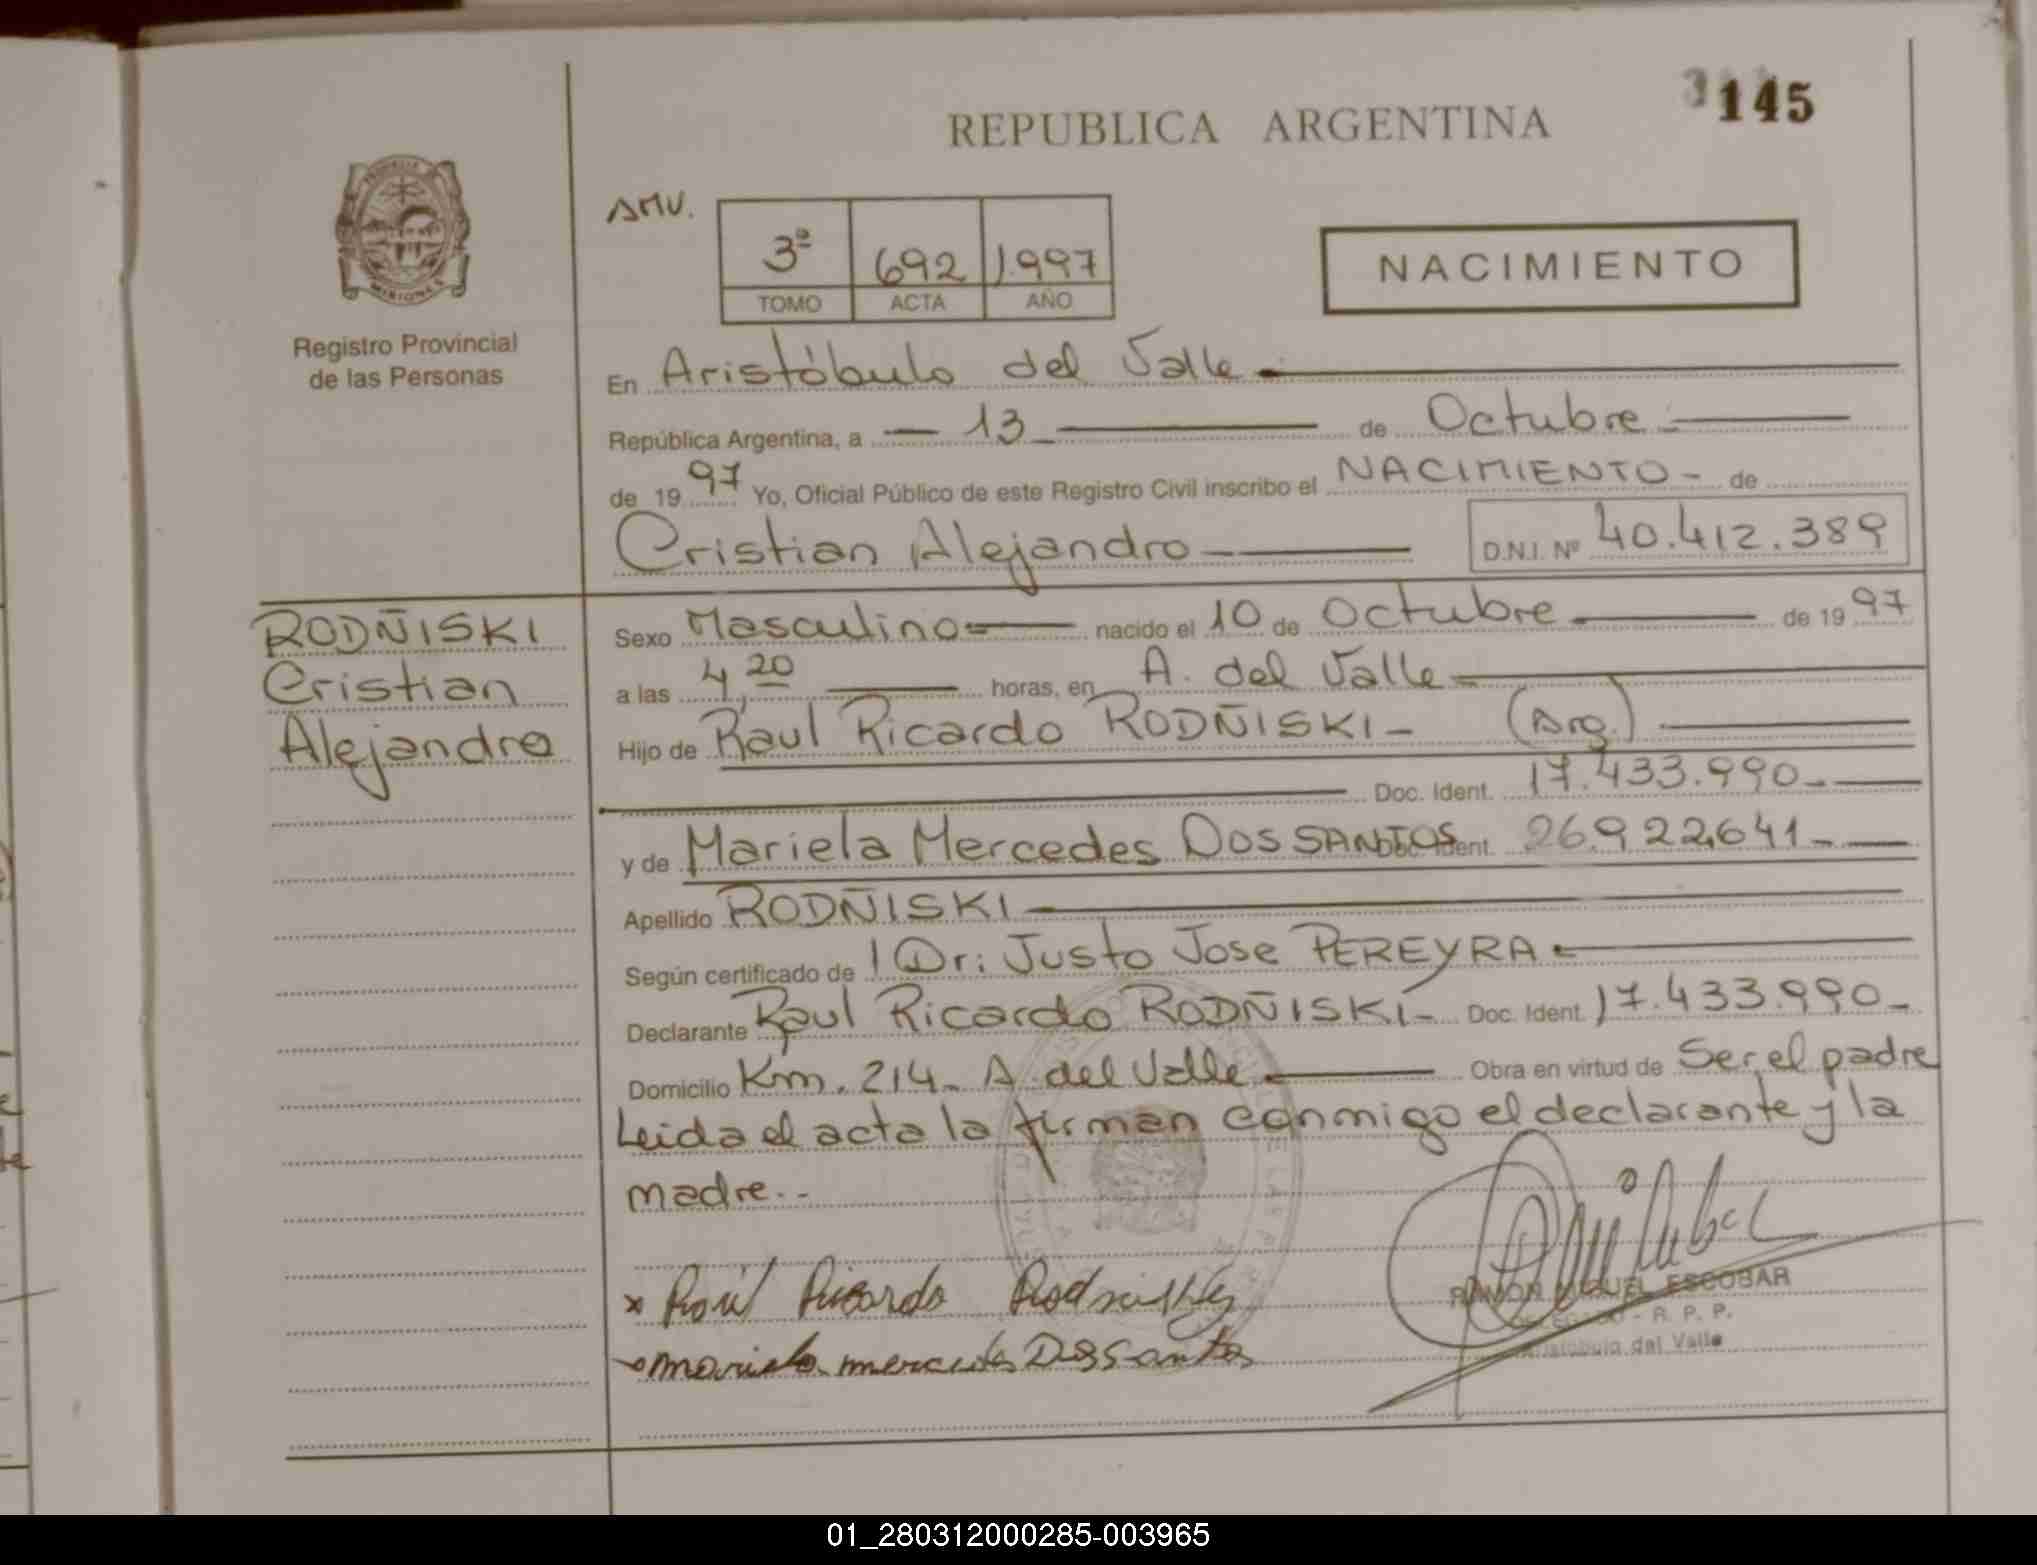 145
REPUBLICA ARGENTINA
AMV.
3ª 692 1.997
TOMO ACTA AÑO
NACIMIENTO
MISIONES
Registro Provincial
de las Personas
En Aristóbulo del Valle
República Argentina, a 13 de Octubre
de 1997 Yo, Oficial Público de este Registro Civil inscribo el NACIMIENTO - de
Cristian Alejandro D.N.I. Nº 40.412.389
RODÑISKI
Cristian
Alejandro
Sexo Masculino nacido el 10 de Octubre de 1997
a las 4,20 horas, en A. del Valle
Hijo de Raul Ricardo RODÑISKI - (Arg.)
Doc. Ident. 17.433.990-
y de Mariela Mercedes DOS SANTOS Doc. Ident. 26.922.641-
Apellido RODÑISKI
Según certificado de Dr: Justo Jose PEREYRA
Declarante Raul Ricardo RODÑISKI- Doc. Ident. 17.433.990-
Domicilio Km. 214- A. del Valle Obra en virtud de Ser el padre
Leida el acta la firman conmigo el declarante y la
madre.-
x Raúl Ricardo
mariela mercedes Dos Santos
RAMON MIGUEL ESCOBAR
DELEGADO - R. P. P.
Aristobulo del Valle
01_280312000285-003965